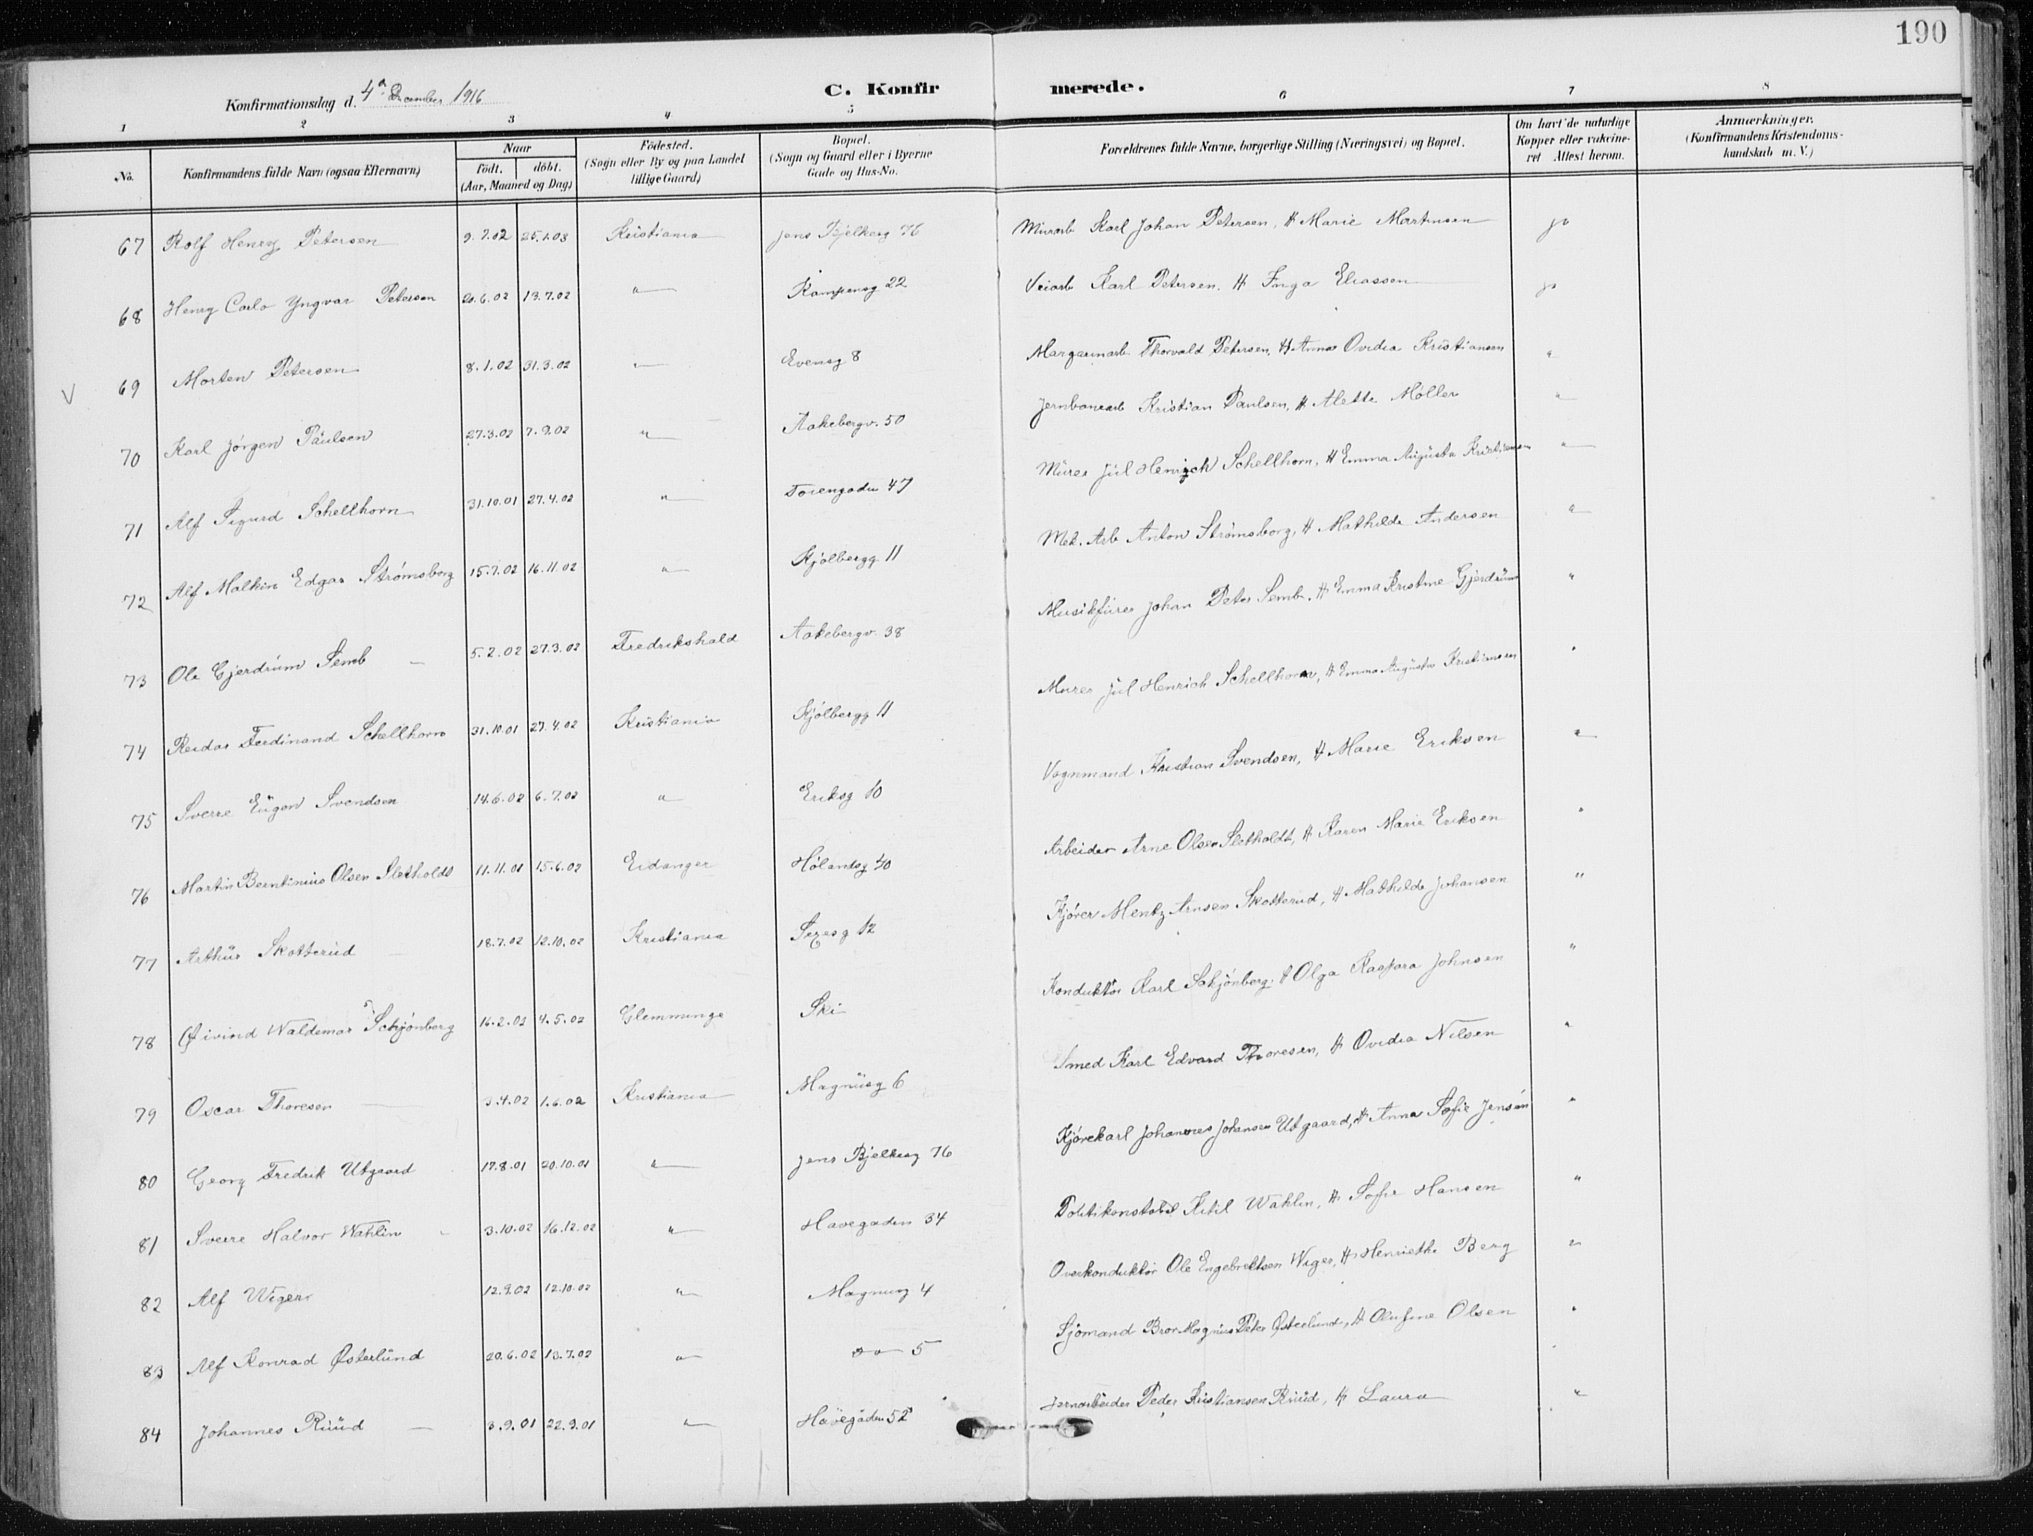 190
Konfirmationsdag d. 4de December 1916
C. Konfirmerede.
1 2 3 4 5 6 7 8
No. Konfirmandens fulde Navn (ogsaa Efternavn) Naar født. døbt. (Aar, Maaned og Dag) Födested. (Sogn eller By og paa Landet tillige Gaard) Bopæl. (Sogn og Gaard eller i Byerne Gade og Hus-No. Forældrenes fulde Navne, borgerlige Stilling (Næringsvei) og Bopæl. Om havt de naturlige Kopper eller vakcineret Attest herom. Anmærkninger. (Konfirmandens Kristendomskundskab m. V.)
67 Rolf Henry Petersen 9.7.02 25.1.03 Kristiania Jens Bjelkesg 76 Murarb Karl Johan Petersen, H Marie Martinsen ja
68 Henry Carlo Yngvar Petersen 20.6.02 13.7.02 " Kampensg 22 Veiarb Karl Petersen. H Inga Eliassen ja
69 Morten Petersen 8.1.02 31.3.02 " Evensg 8 Margarinarb Thorvald Petersen, H Anna Ovidia Kristiansen "
V
70 Karl Jörgen Paulsen 27.3.02 7.9.02 " Aakebergv. 50 Jernbanearb Kristian Paulsen, H Alette Möller "
71 Alf Sigurd Schellhorn 31.10.01 27.4.02 " 47 Murer Jul Henrich Schellhorn, H Emma Augusta Kristiansen "
72 Alf Malkin Edgar Strømsborg 15.7.02 16.11.02 " Kjölbergg 11 Met. Arb Anton Strømsborg, H Mathilde Andersen "
73 Ole Gjerdrum Semb 5.2.02 27.3.02 Fredrikshald Aakebergv. 38 Johan Peter Semb, H Emma Kristine Gjerdrum "
74 Reidar Ferdinand Schellhorn 31.10.01 27.4.02 Kristiania Kjölbergg 11 Murer Jul Henrich Schellhorn, H Emma Augusta Kristiansen "
75 Sverre Eugen Svendsen 14.6.02 6.7.02 " Eriksg 10 Vognmand Kristian Svendsen, H Marie Eriksen "
76 Martin Berntinius Olsen Sletholdt 11.11.01 15.6.02 Eidanger Hölandsg 40 Arbeider Arne Olsen Sletholdt, H Karen Marie Eriksen "
77 Arthur Skotterud 18.7.02 12.10.02 Kristiania Sexesg 12 Kjörer Mentz Arnsen Skotterud, H Mathilde Johansen "
78 Øivind Waldemar Schjönberg 16.2.02 4.5.02 Glemminge Ski Konduktör Karl Schjönberg, H Olga Kaspara Johnsen "
79 Oscar Thoresen 3.4.02 1.6.02 Kristiania Magnusg 6 Smed Karl Edvard Thoresen, H Ovidia Nilsen "
80 Georg Fredrik Utgaard 17.8.01 20.10.01 " Jens Bjelkesg 76 Kjörekarl Johannes Johansen Utgaard, H Anna Sofie Jensen "
81 Sverre Halvor Wahlin 3.10.02 16.12.02 " Havegaden 34 Politikonstabel Ketil Wahlin, H Sofie Hansen "
82 Alf Wiger 12.9.02 12.10.02 " Magnusg 4 Overkonduktör Ole Engebretsen Wiger, H Henriette Berg "
83 Alf Konrad Østerlund 20.6.02 13.7.02 " " 5 Sjömand Bror Magnus Peter Østerlund, H Olufine Olsen "
84 Johannes Ruud 3.9.01 22.9.01 " Havegaden 52 Jernarbeider Peder Kristiansen Ruud, H Laura "